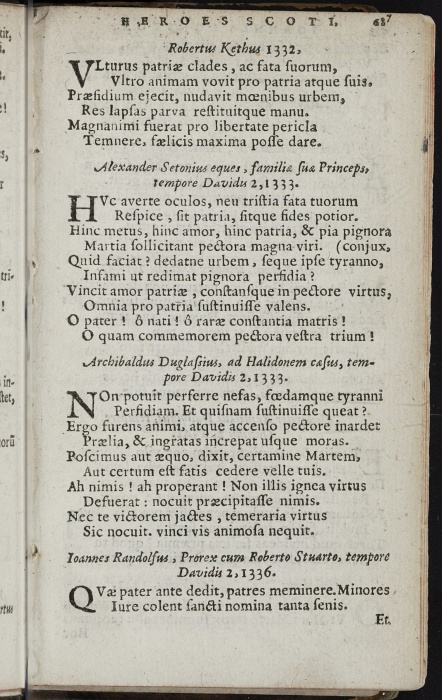 HEROES SCOTI. 687
Robertus Kethus 1332,
VLturus patriæ clades, ac fata suorum,
Vltro animam vovit pro patria atque suis.
Præsidium ejecit, nudavit mœnibus urbem,
Res lapsas parva restituitque manu.
Magnanimi fuerat pro libertate pericla
Temnere, fælicis maxima posse dare.
Alexander Setonius eques, familiæ suæ Princeps,
tempore Davidis 2,1333.
HVc averte oculos, neu tristia fata tuorum
Respice, sit patria, sitque fides potior.
Hinc metus, hinc amor, hinc patria, & pia pignora
Martia sollicitant pectora magna viri. (conjux,
Quid faciat? dedatne urbem, seque ipse tyranno,
Infami ut redimat pignora perfidia?
Vincit amor patriæ, constansque in pectore virtus,
Omnia pro patria sustinuisse valens.
O pater! ô nati! ô raræ constantia matris!
O quam commemorem pectora vestra trium!
Archibaldus Duglassius, ad Halidonem cæsus, tem-
pore Davidis 2,1333.
NOn potuit perferre nefas, fœdamque tyranni
Perfidiam. Et quisnam sustinuisse queat?
Ergo furens animi, atque accenso pectore inardet
Prælia, & ingratas increpat usque moras.
Poscimus aut æquo, dixit, certamine Martem,
Aut certum est fatis cedere velle tuis.
Ah nimis! ah properant! Non illis ignea virtus
Defuerat: nocuit præcipitasse nimis.
Nec te victorem jactes, temeraria virtus
Sic nocuit. vinci vis animosa nequit.
Ioannes Randolfus, Prorex cum Roberto Stuarto, tempore
Davidis 2,1336.
QVæ pater ante dedit, patres meminere. Minores
Iure colent sancti nomina tanta senis.
Et.